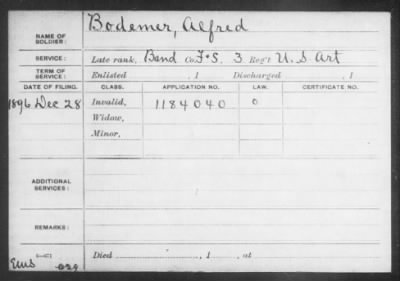 NAME OF SOLDIER: Bodemer, Alfred
SERVICE: Late rank, Band Co. F+S. 3 Reg't U.S Art
TERM OF SERVICE: Enlisted , 1 Discharged , 1
DATE OF FILING. CLASS. APPLICATION NO. LAW. CERTIFICATE NO.
1896 Dec 28 Invalid, 1184040 0
Widow,
Minor,
ADDITIONAL SERVICES:
REMARKS:
Died , 1 , at